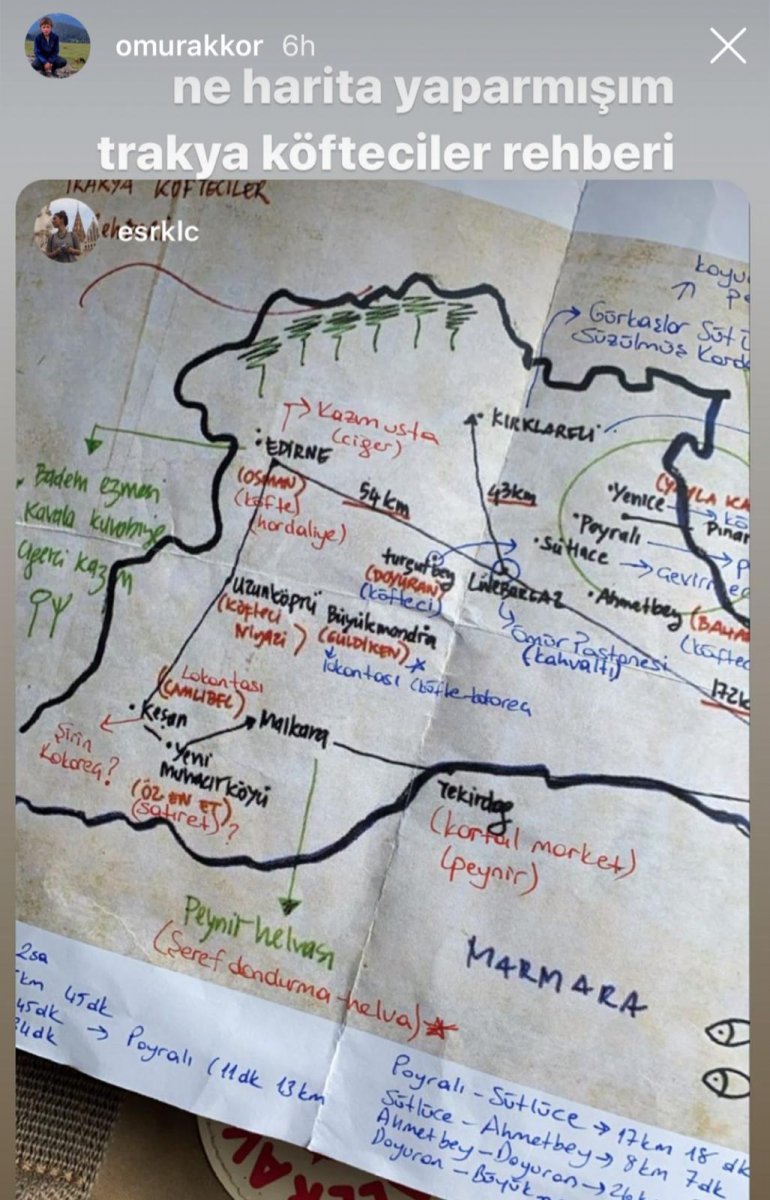 omurakkor 6h
ne harita yaparmışım
trakya köfteciler rehberi
TRAKYA KÖFTECİLER
esrklc
koyu
Görkaşlar Süt
Süzülmüş
Kazım usta
(ciğer)
KIRKLARELİ
EDİRNE
(OSMAN)
(köfte)
(hardaliye)
54 km
43km
Badem ezmesi
Kavala kurabiye
ciğerci kazım
Yenice
Pınar
Poyralı
Sütlüce
Çevirme
Ahmetbey
(köftec
turgutbey
(DOYURAN)
(köfteci)
LÜLEBURGAZ
Ömür Pastanesi
(kahvaltı)
172k
Uzunköprü
(KÖFTECİ
NİYAZİ)
Büyükmandıra
(GÜLDİKEN)
lokantası
Lokantası
(ÇAMLIBEL)
Keşan
Malkara
Şirin
Kokoreç?
Yeni
Muhacırköyü
(ÖZ EN ET)
(satıret)?
Tekirdağ
(kartal market)
(peynir)
Peynir helvası
(Şeref dondurma-helva)
MARMARA
2sa
km 45dk
45dk → Poyralı (11dk 13km
4dk
Poyralı - Sütlüce → 17km 18 dk
Sütlüce - Ahmetbey → 8km 7dk
Ahmetbey - Doyuran →
Doyuran - Büyük